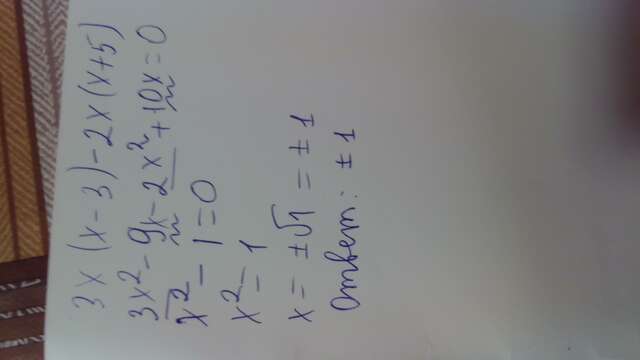 3x (x - 3) - 2x (x+5)
3x² - 9x - 2x² + 10x = 0
x² - 1 = 0
x² = 1
x = ±√1 = ±1
Ответ: ±1